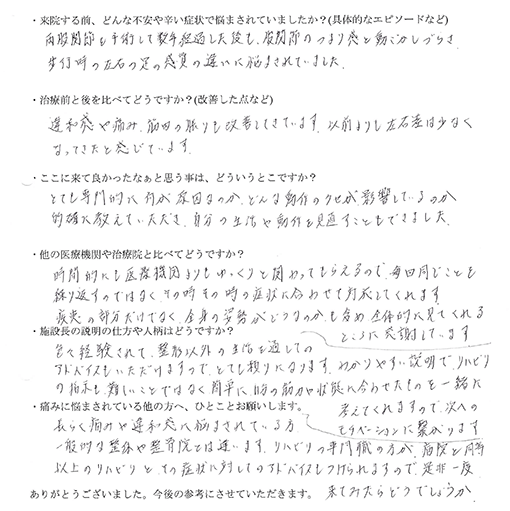 ・来院する前、どんな不安や辛い症状で悩まされていましたか？(具体的なエピソードなど)
両股関節を手術して数年経過した後も、股関節のつまり感と動かしづらさ、
歩行時の左右の足の感覚の違いに悩まされていました。
・治療前と後を比べてどうですか？(改善した点など)
違和感や痛み、筋肉の張りも改善してきています。以前よりも左右差は少なく
なってきたと感じています。
・ここに来て良かったなぁと思う事は、どういうとこですか？
とても専門的に何が原因なのか、どんな動作のクセが影響しているのか
的確に教えていただき、自分の生活や動作を見直すこともできました。
・他の医療機関や治療院と比べてどうですか？
時間的にも医療機関よりもゆっくりと関わってもらえるので、毎回同じことを
繰り返すのではなく、その時その時の症状に合わせて対応してくれます。
疾患の部分だけでなく、全身の姿勢がどうなのかも含め全体的に見てくれる
ところに感謝しています
・施設長の説明の仕方や人柄はどうですか？
色々経験されて、整形以外の生活を通しての
アドバイスもいただけますので、とても頼りになります。わかりやすい説明で、リハビリ
の指導も、難しいことではなく簡単に、私の筋力や状態に合わせたものを一緒に
考えてくれますので、次への
モチベーションに繋がります
・痛みに悩まされている他の方へ、ひとことお願いします。
長らく痛みや違和感に悩まされている方
一般的な整体や整骨院とは違います。リハビリの専門職の方が、病院と同等
以上のリハビリと、その症状に対してのアドバイスもつけられますので、是非一度
来てみたらどうでしょうか
ありがとうございました。今後の参考にさせていただきます。